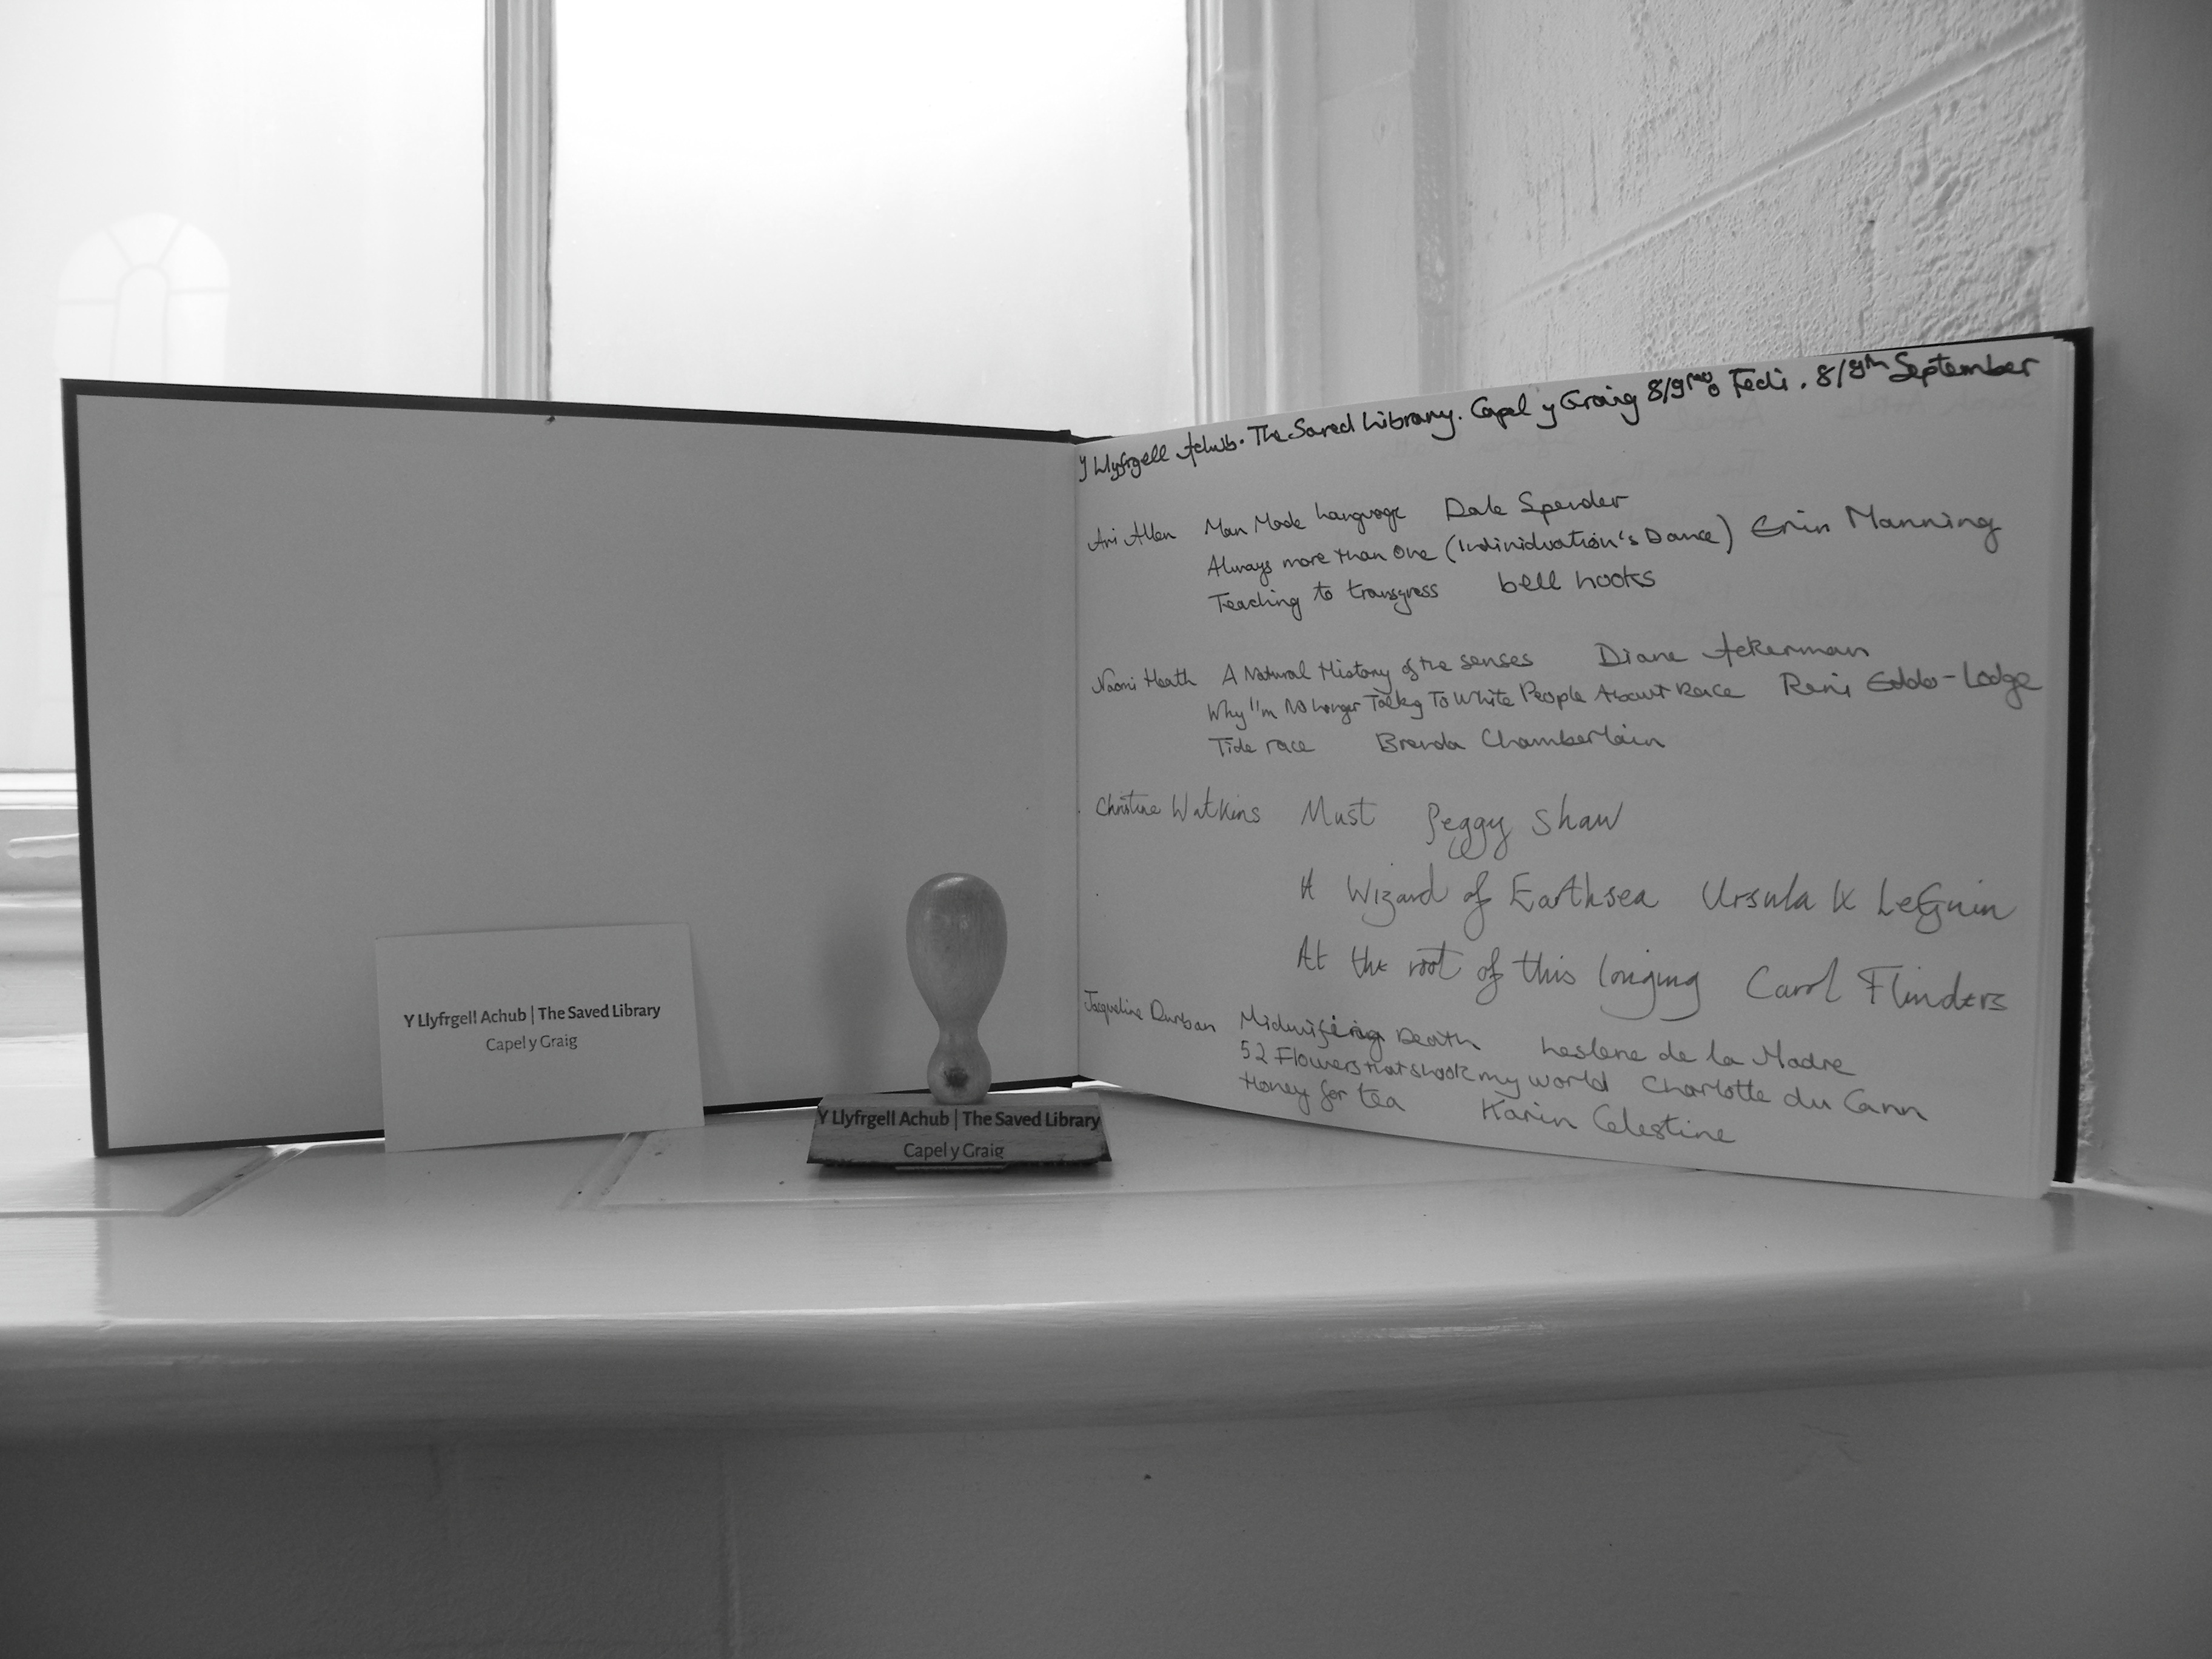 Y Llyfrgell Achub | The Saved Library
Capel y Graig
Y Llyfrgell Achub | The Saved Library
Capel y Graig
Y Llyfrgell Achub. The Saved Library. Capel y Graig 8/9 o Fedi. 8/9th September
Ari Allen Man Made Language Dale Spender
Always more than one (Individuation's Dance) Erin Manning
Teaching to transgress bell hooks
Naomi Heath A Natural History of the senses Diane Ackerman
Why I'm No Longer Talking To White People About Race Reni Eddo-Lodge
Tide race Brenda Chamberlain
Christine Watkins Must Peggy Shaw
A Wizard of Earthsea Ursula K LeGuin
At the root of this longing Carol Flinders
Jacqueline Durban Midwifing Death Leslene de la Madre
52 Flowers that shook my world Charlotte du Cann
Honey for tea Karin Celestine